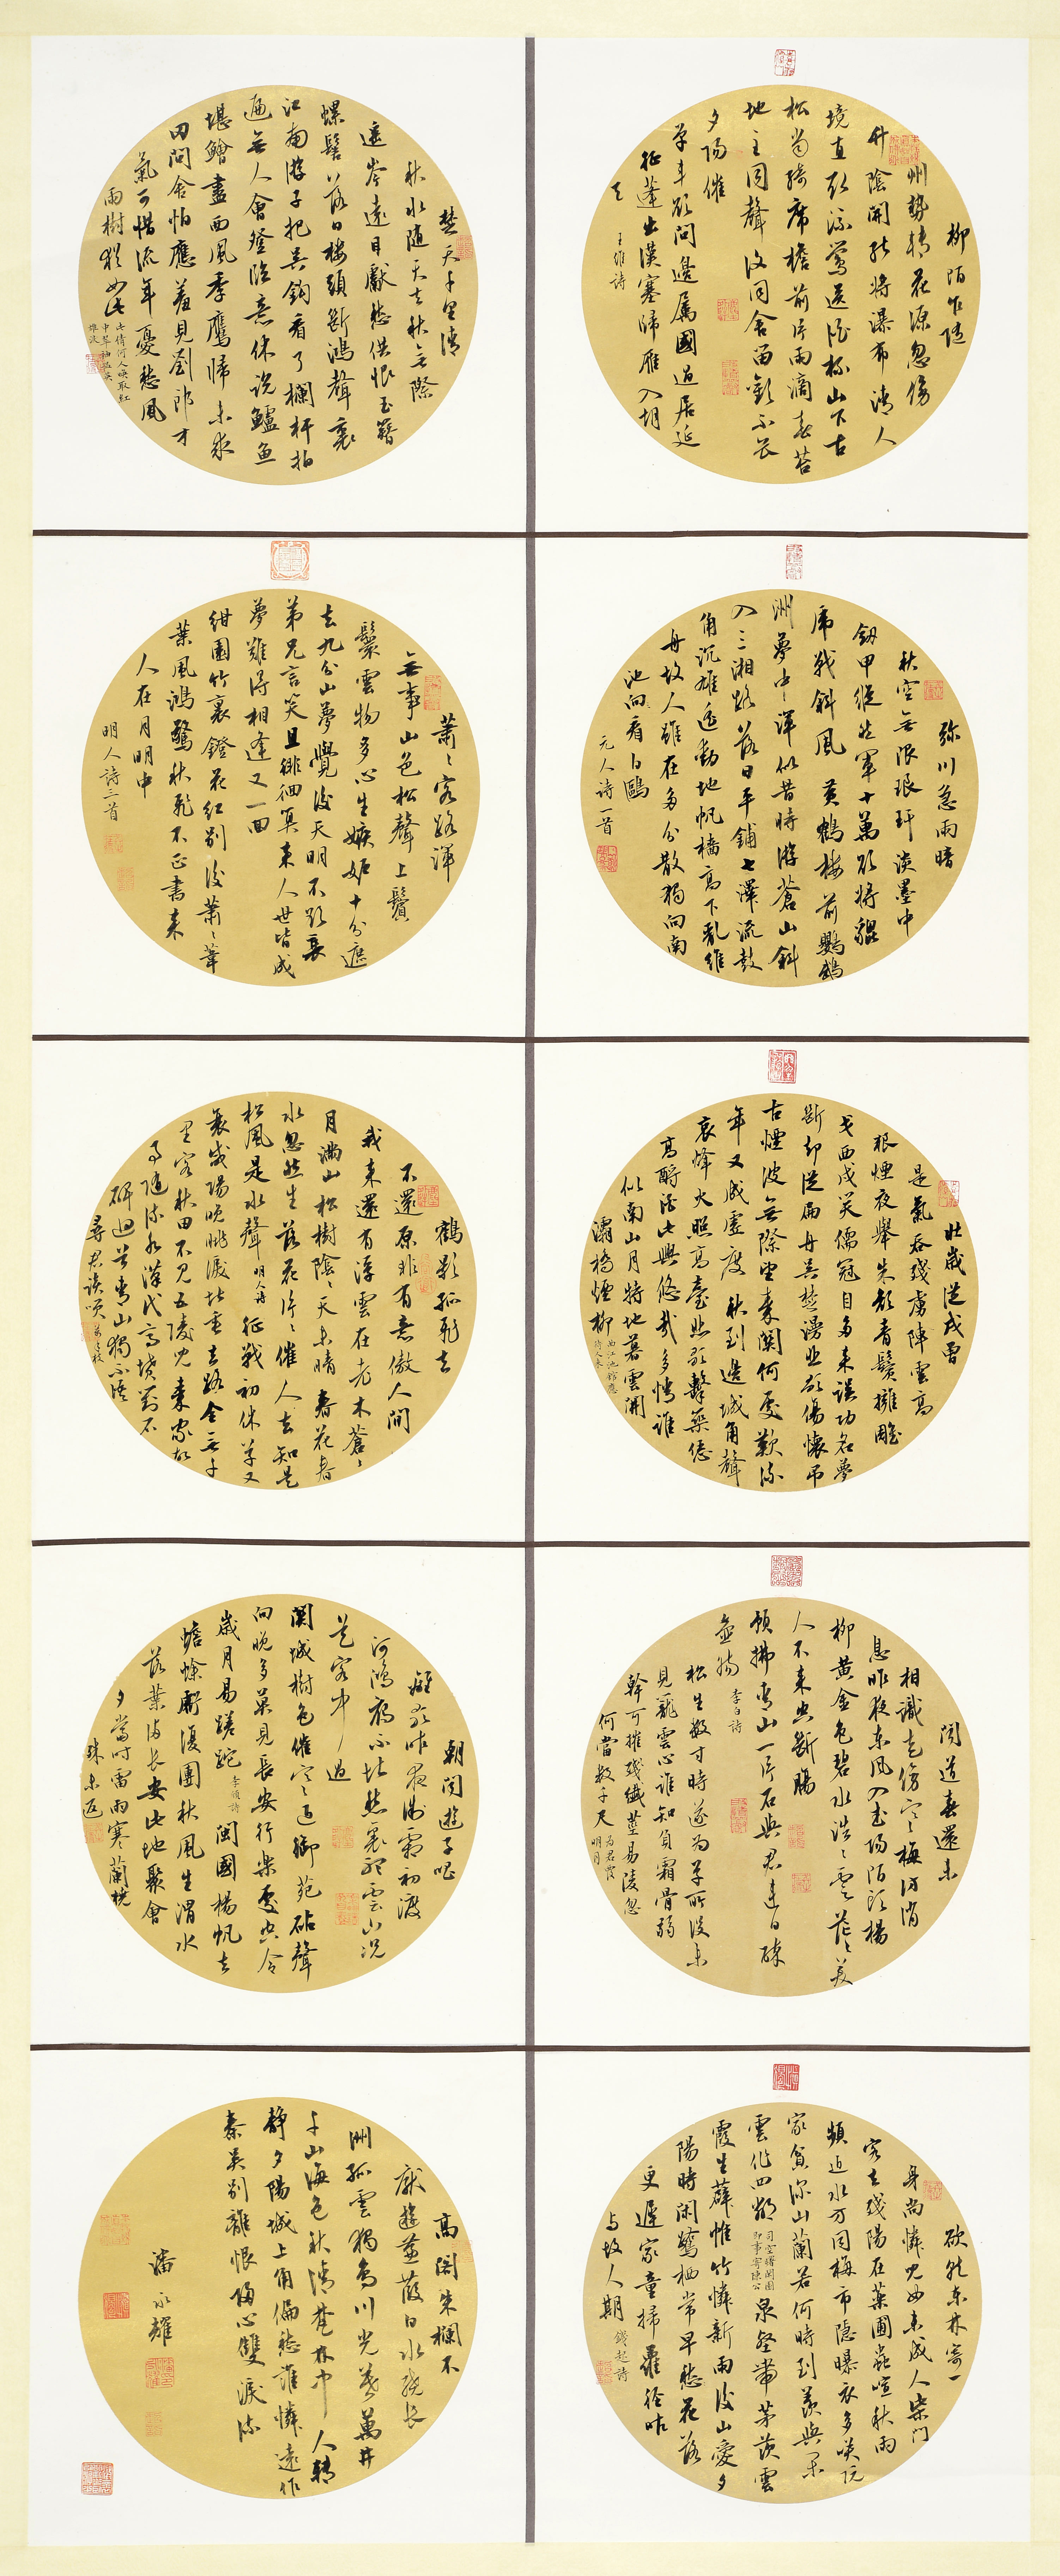 柳陌乍随
州势转花源忽傍
竹阴开能将瀑布清人
境直取流莺送酒杯山下古
松当绮席檐前片雨滴春苔
地主同声复同舍留欢不畏
夕阳催
单车欲问边属国过居延
征蓬出汉塞归雁入胡
天
王维诗
楚天千里清
秋水随天去秋无际
遥岑远目献愁供恨玉簪
螺髻落日楼头断鸿声里
江南游子把吴钩看了栏杆拍
遍无人会登临意休说鲈鱼
堪鲙尽西风季鹰归未求
田问舍怕应羞见刘郎才
气可惜流年忧愁风
雨树犹如此
弥川急雨暗
秋空无限琅玕淡墨中
战斜风 黄鹤楼前鹦鹉
洲梦中浑似昔时游苍山斜
入三湘路落日平铺七泽流鼓
角沉雄遥动地帆樯高下乱维
舟故人虽在多分散独向南
池向看白鸥
元人诗一首
萧々客路浑
无事山色松声上鬓
鬟云物多心生嫉妒十分遮
去九分山梦觉后天明不欲长
弟兄言笑且徘徊算来人世皆成
梦难得相逢又一回
绀园竹里镫花红别后萧々苇
叶风鸿惊秋飞不正书来
人在月明中
明人诗三首
壮岁从戎曾
是气吞残虏阵云高
狼烟夜举朱颜青鬓拥雕
戈西戍笑儒冠自多来误功名梦
断却泛扁舟吴楚漫悲歌伤怀吊
古烟波无际望秦关何处叹流
年又成虚度 秋到边城角声
哀烽火照高台悲歌击筑凭
高酹酒此兴悠哉多情谁
似南山月特地暮云开
灞桥烟柳
鹤影孤飞去
不还原非有意傲人间
我来还有浮云在老木苍々
月满山松树阴々天未晴 春花春
水忽然生落花片々催人去知是
松风是水声 征战初休草又
衰咸阳晚眺泪堪垂去路全无千
里客秋田不见五陵儿秦家故
事随流水汉代高坟对石
碑回首青山独不语
闻道春还未
相识走傍寒梅访消
息昨夜东风入武阳陌头杨
柳黄金色碧水浩々云茫々美
人不来空断肠
预拂青山一片石与君连日醉
壶觞 李白诗
松生数寸时遂为草所没未
见笼云心谁知负霜骨弱
干可摧残纤茎易陵忽
何当数千尺 为君覆明月
朝闻游子唱
离歌昨夜微霜初渡
河鸿雁不堪愁里听云山况
是客中过
关城树色催寒近御苑砧声
向晚多莫见长安行乐处空令
岁月易蹉跎 李颀诗 闽国扬帆去
蟾蜍亏复团秋风生渭水
落叶满长安此地聚会
夕当时雷雨寒兰桡
殊未返
欲就东林寄一
身尚怜儿女未成人柴门
客去残阳在药圃虫喧秋雨
频近水方同梅市隐曝衣多笑阮
家贫深山兰若何时到羡与闲
云作四邻 司空曙闲园即事寄暕公 泉壑带茅茨云
霞生薜帷竹怜新雨后山爱夕
阳时闲鹭栖常早秋花落
更迟家童扫萝径昨
与故人期 钱起诗
高阁朱栏不
厌游蒹葭白水绕长
洲孤云独鸟川光暮万井
千山海色秋清梵林中人转
静夕阳城上角偏愁谁怜远作
秦吴别离恨归心双泪流
潘永耀